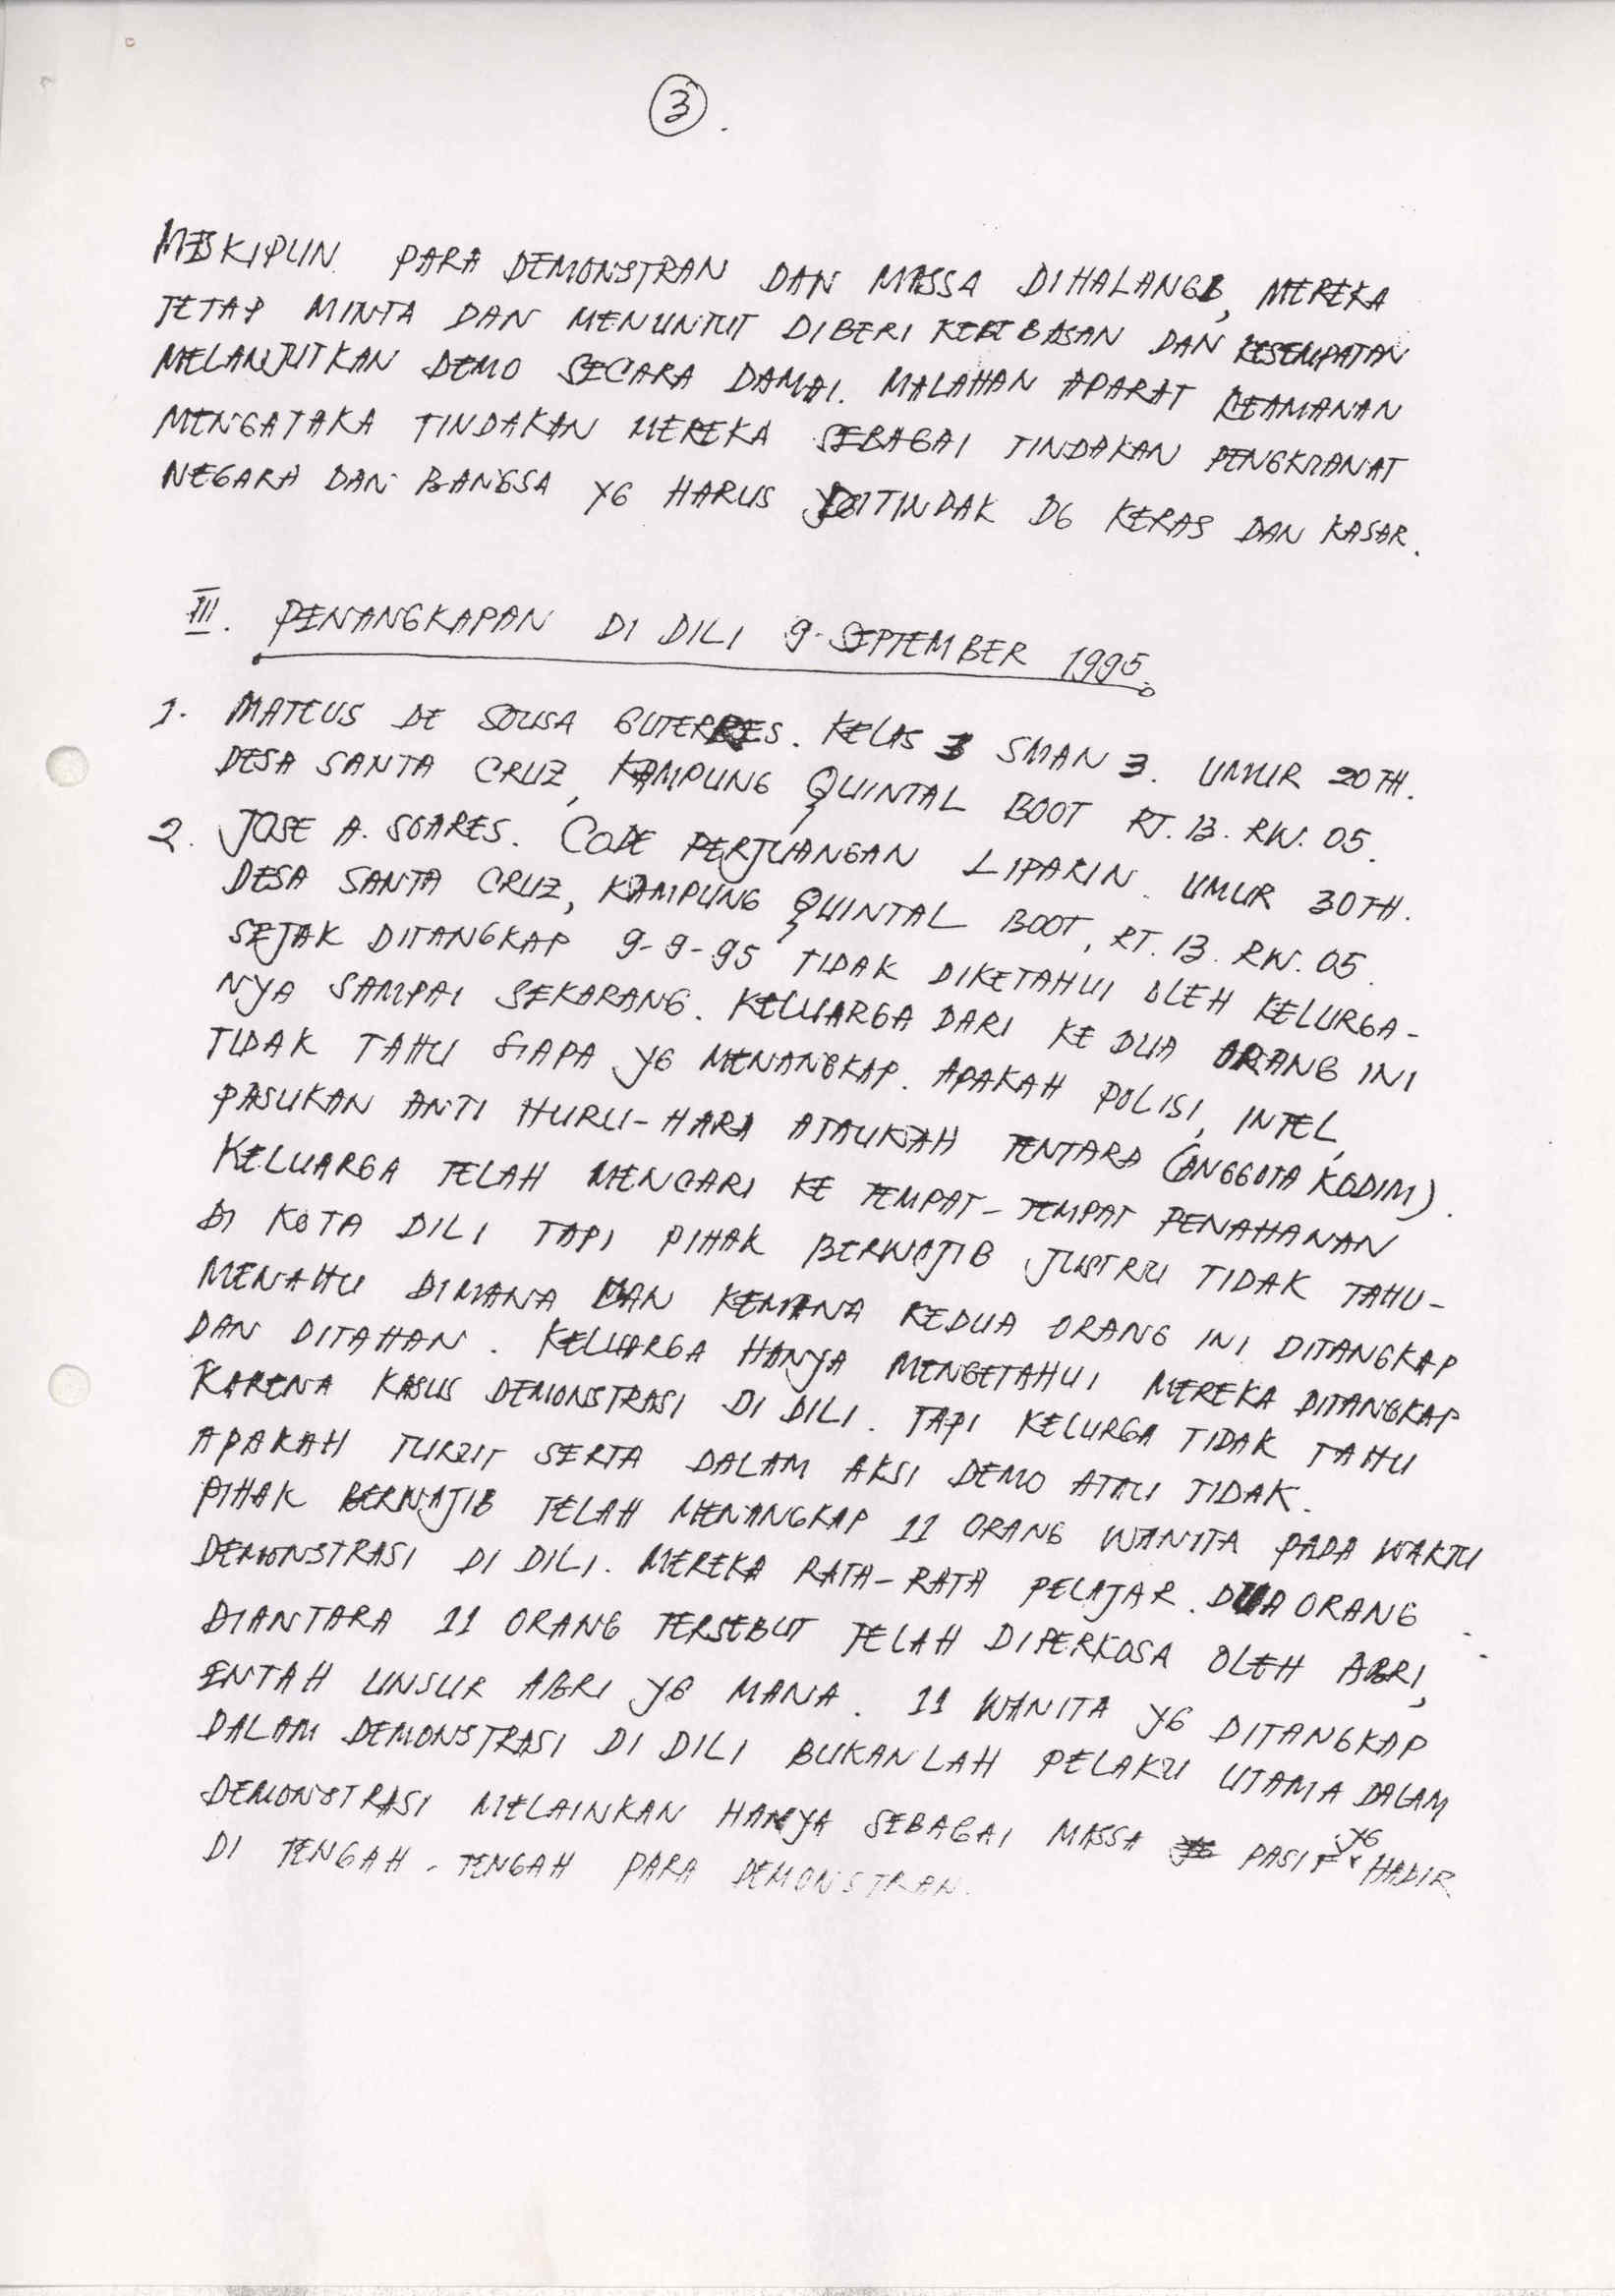 3.
MESKIPUN PARA DEMONSTRAN DAN MASSA DIHALANGI, MEREKA
TETAP MINTA DAN MENUNTUT DIBERI KEBEBASAN DAN KESEMPATAN
MELANJUTKAN DEMO SECARA DAMAI. MALAHAN APARAT KEAMANAN
MENGATAKA TINDAKAN MEREKA SEBAGAI TINDAKAN PENGKIANAT
NEGARA DAN BANGSA YG HARUS DITINDAK DG KERAS DAN KASAR.
III. PENANGKAPAN DI DILI 9-SEPTEMBER 1995.
1. MATEUS DE SOUSA GUTERRES. KELAS 3 SMAN 3. UMUR 20TH.
DESA SANTA CRUZ, KAMPUNG QUINTAL BOOT RT. 13. RW. 05.
2. JOSE A. SOARES. CODE PERJUANGAN LIPARIN. UMUR 30TH.
DESA SANTA CRUZ, KAMPUNG QUINTAL BOOT, RT. 13. RW. 05.
SEJAK DITANGKAP 9-9-95 TIDAK DIKETAHUI OLEH KELURGA-
NYA SAMPAI SEKARANG. KELUARGA DARI KE DUA ORANG INI
TIDAK TAHU SIAPA YG MENANGKAP. APAKAH POLISI, INTEL,
PASUKAN ANTI HURU-HARA ATAUKAH TENTARA (ANGGOTA KODIM).
KELUARGA TELAH MENCARI KE TEMPAT-TEMPAT PENAHANAN
DI KOTA DILI TAPI PIHAK BERWAJIB JUSTRU TIDAK TAHU-
MENAHU DIMANA DAN KEMANA KEDUA ORANG INI DITANGKAP
DAN DITAHAN. KELUARGA HANYA MENGETAHUI MEREKA DITANGKAP
KARENA KASUS DEMONSTRASI DI DILI. TAPI KELURGA TIDAK TAHU
APAKAH TURUT SERTA DALAM AKSI DEMO ATAU TIDAK.
PIHAK BERWAJIB TELAH MENANGKAP 11 ORANG WANITA PADA WAKTU
DEMONSTRASI DI DILI. MEREKA RATA-RATA PELAJAR. DUA ORANG
DIANTARA 11 ORANG TERSEBUT TELAH DIPERKOSA OLEH ABRI,
ENTAH UNSUR ABRI YG MANA. 11 WANITA YG DITANGKAP
DALAM DEMONSTRASI DI DILI BUKANLAH PELAKU UTAMA DALAM
DEMONSTRASI MELAINKAN HANYA SEBAGAI MASSA PASIF YG HADIR
DI TENGAH-TENGAH PARA DEMONSTRAN.